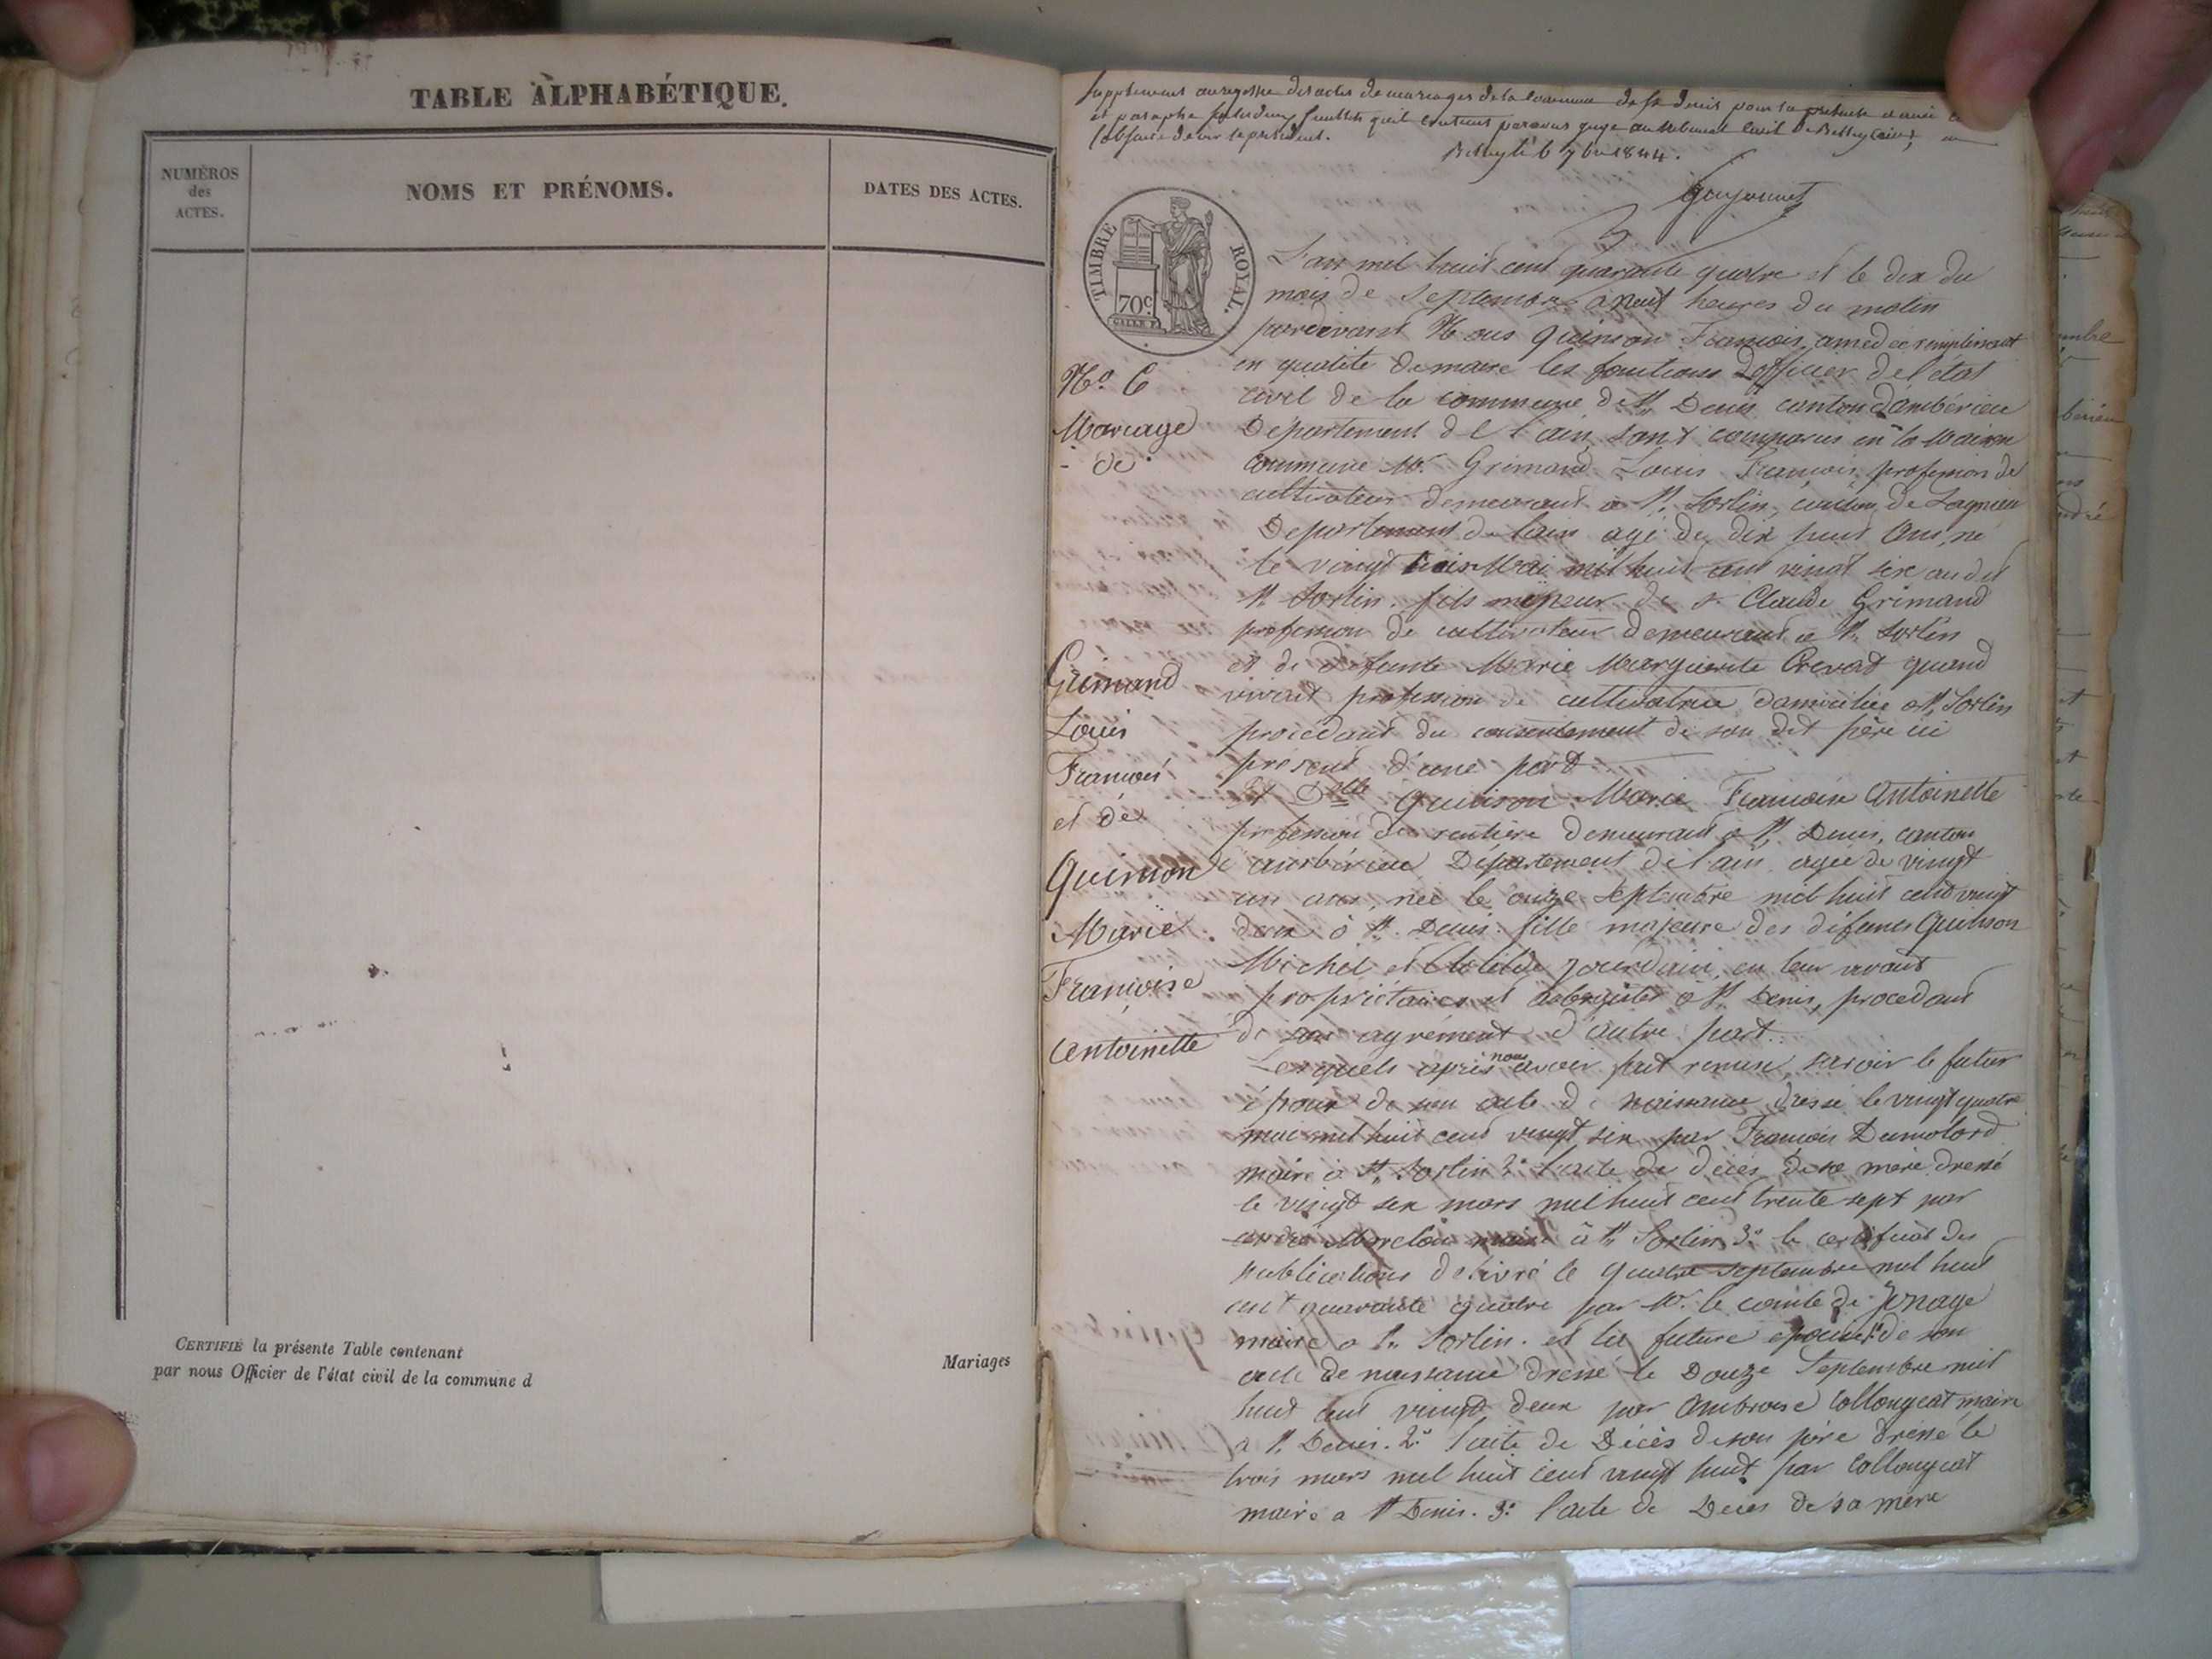 TABLE ALPHABÉTIQUE.
NUMÉROS
des
ACTES.
NOMS ET PRÉNOMS.
DATES DES ACTES.
CERTIFIÉ la présente Table contenant
Mariages
par nous Officier de l'état civil de la commune d
Supplement au registre des actes de mariages de la commune de St Denis pour la presente année
et paraphé
1844.
TIMBRE ROYAL.
70c.
L'an mil huit cent quarante quatre et le dix du
mois de Septembre à neuf heures du matin
pardevant Nous Quinson François amédée remplissant
en qualité de maire les fonctions d'officier de l'état
civil de la commune de St Denis canton d'ambérieu
Département de l'ain, sont comparus en la Maison
commune Mr. Grimand Louis François, profession de
cultivateur demeurant à St Sorlin, canton de Lagnieu
Departement de l'ain agé de dix huit ans, né
le vingt trois Mai mil huit cent vingt six au dit
St Sorlin. fils mineur de sr Claude Grimand
profession de cultivateur demeurant à St Sorlin
et de défunte Marie Marguerite Crevat quand
vivait profession de cultivatrice domiciliée a St Sorlin
procédant du consentement de son dit père ici
présent d'une part.
Et Delle Quinson Marie Francoise Antoinette
profession de rentière demeurant à St Denis, canton
d'ambérieu Département de l'ain, agée de vingt
un ans, née le onze septembre mil huit cent vingt
deux à St Denis. fille majeure des défunts Quinson
Michel et Clotilde Jourdain, en leur vivant
propriétaires et à St Denis, procedant
de son agrément d'autre part.
Lesquels après nous avoir fait remise, savoir le futur
époux de son acte de naissance dressé le vingt quatre
mai mil huit cent vingt six par François Dumolard
maire à St Sorlin 2° l'acte de décès de sa mère dressé
le vingt six mars mil huit cent trente sept par
andré maire à St Sorlin 3° le certificat des
publications délivré le quatre septembre mil huit
cent quarante quatre par Mr. le comte de Jonage
maire a St Sorlin. et la future épouse: de son
acte de naissance dressé le Douze Septembre mil
huit cent vingt deux par Ambroise Collongeat maire
à St Denis. 2° l'acte de Décès de son père dressé le
trois mars mil huit cent vingt huit par Collongeat
maire a St Denis. 3° l'acte de Deces de sa mère
No 6
Mariage
de
Grimand
Louis
François
et de
Quinson
Marie
Françoise
Antoinette